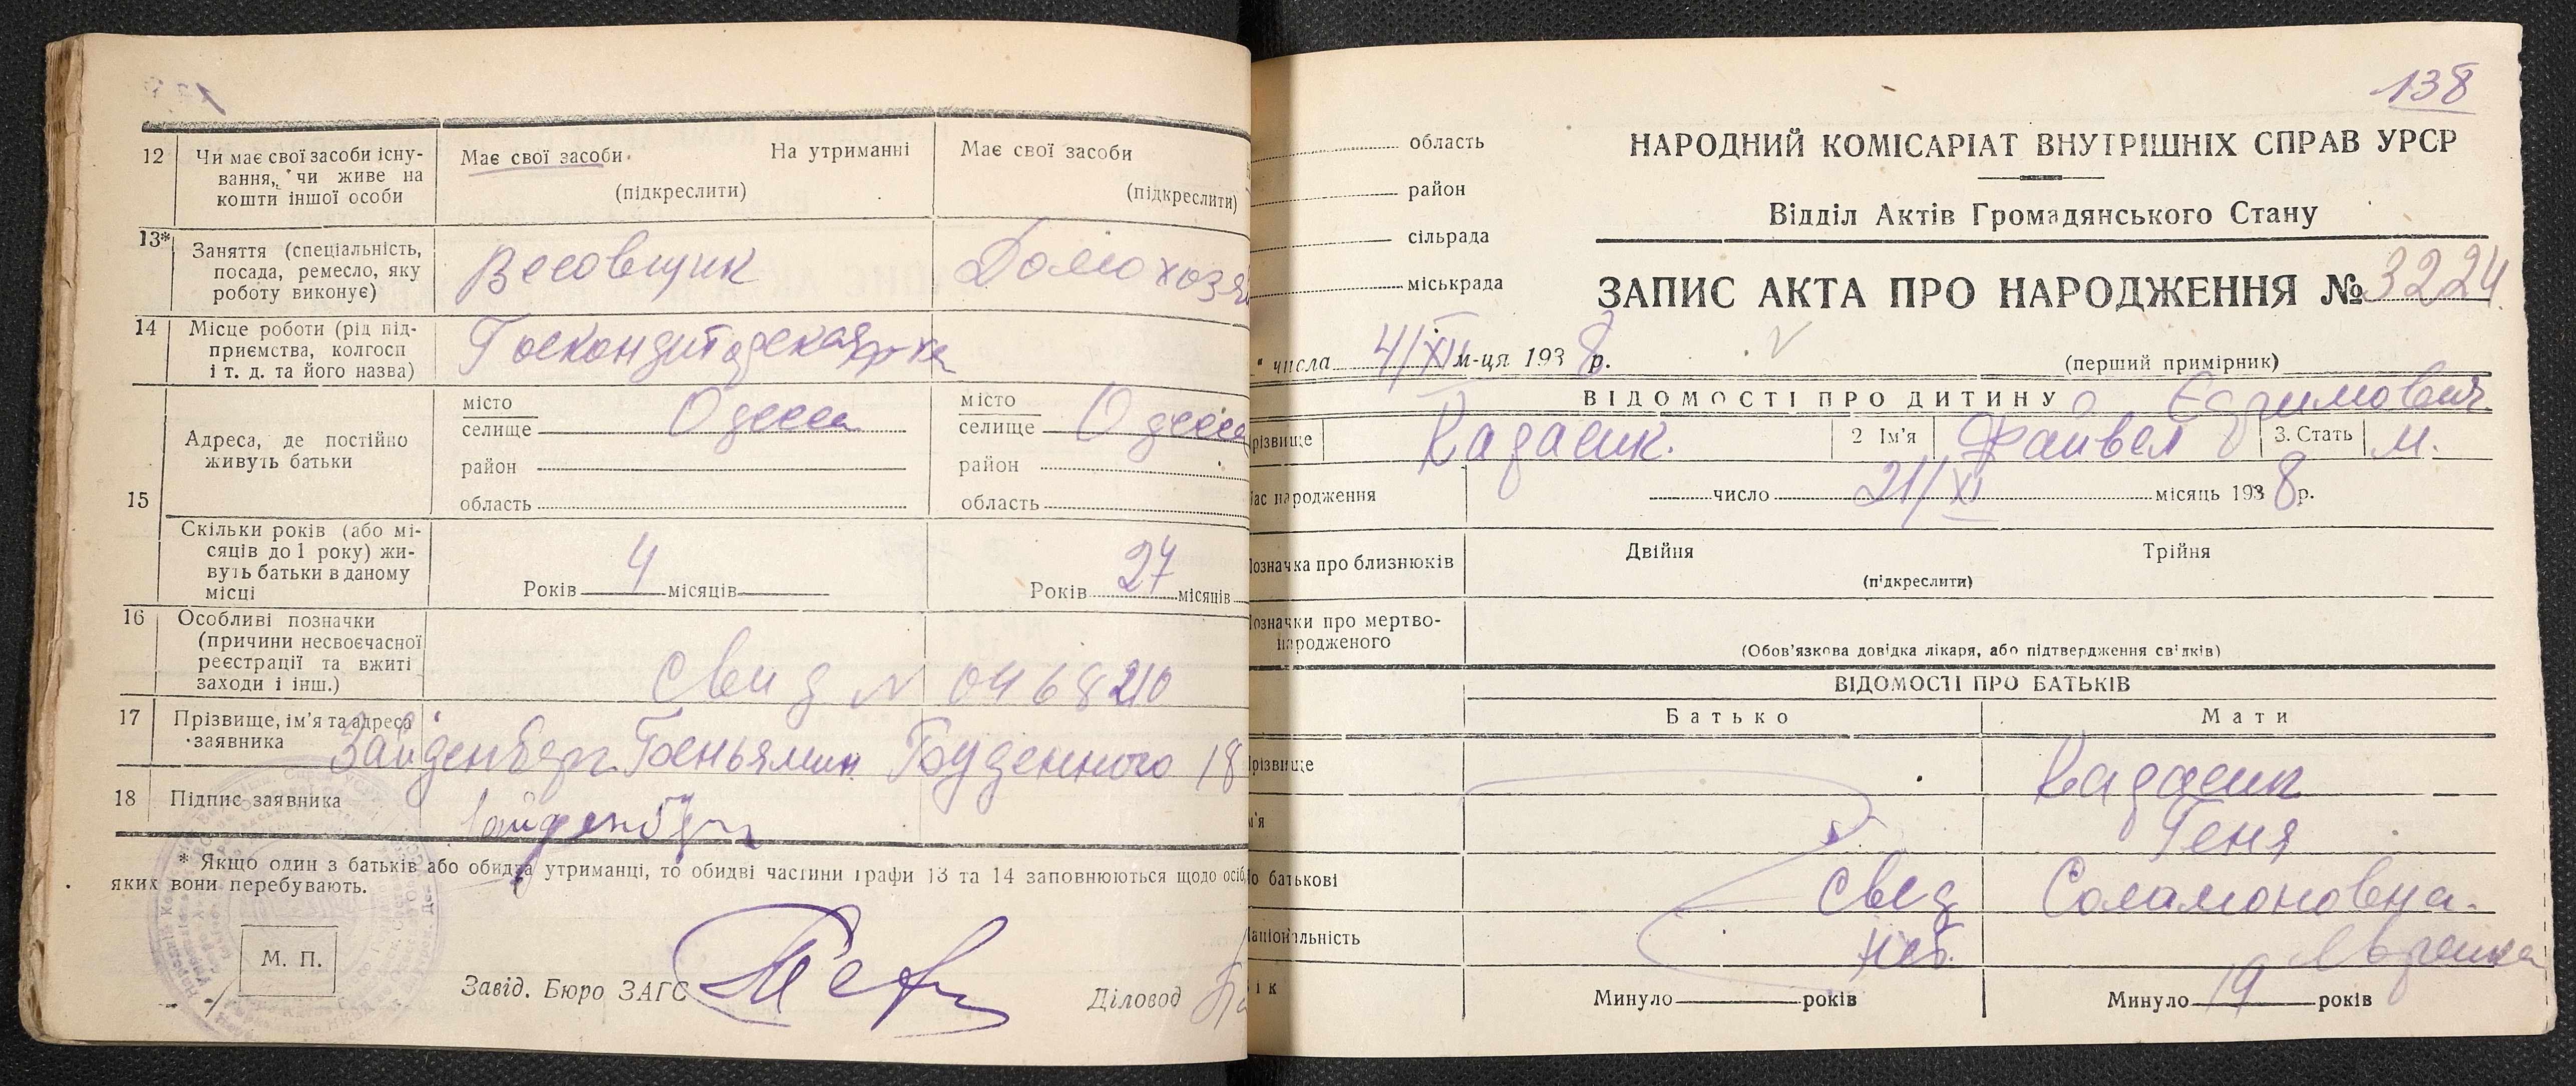 12 Чи має свої засоби існу-
вання, чи живе на
кошти іншої особи
Має свої засоби. На утриманні
(підкреслити)
Має свої засоби
(підкреслити)
13* Заняття (спеціальність,
посада, ремесло, яку
роботу виконує)
Весовщик
Домохозя
14 Місце роботи (рід під-
приємства, колгосп
і т. д. та його назва)
Госкондитерская ф-ка
15 Адреса, де постійно
живуть батьки
місто Одесса
селище
район
область
місто Одесса
селище
район
область
Скільки років (або мі-
сяців до 1 року) жи-
вуть батьки в даному
місці
Років 4 місяців
Років 27 місяців
16 Особливі позначки
(причини несвоєчасної
реєстрації та вжиті
заходи і інш.)
Свид N 0468210
17 Прізвище, ім'я та адреса
заявника
Зайденберг Беньямин Буденного 18
18 Підпис заявника
Зайденберг
* Якщо один з батьків або обидва утриманні, то обидві частини графи 13 та 14 заповнюються щодо осіб,
яких вони перебувають.
М. П.
Завід. Бюро ЗАГС
Діловод
138
область
район
сільрада
міськрада
НАРОДНИЙ КОМІСАРІАТ ВНУТРІШНІХ СПРАВ УРСР
Відділ Актів Громадянського Стану
ЗАПИС АКТА ПРО НАРОДЖЕННЯ № 3224.
" числа 4/XII м-ця 1938 р.
(перший примірник)
ВІДОМОСТІ ПРО ДИТИНУ
Ефимович
різвище Кадасик. 2 Ім'я Файвел 3. Стать м.
ас народження
число 21/XI місяць 1938 р.
означка про близнюків
Двійня Трійня
(підкреслити)
означки про мертво-
народженого
(Обов'язкова довідка лікаря, або підтвердження свідків)
ВІДОМОСТІ ПРО БАТЬКІВ
Батько Мати
різвище Кадасик
м'я Геня
о батькові Свед Соламоновна.
аціональність нет. Еврейка
ік Минуло років Минуло 19 років